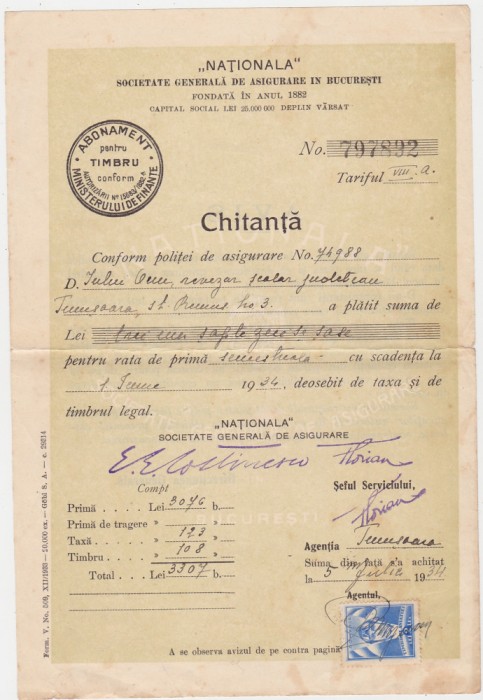 „NAȚIONALA"
SOCIETATE GENERALĂ DE ASIGURARE IN BUCUREȘTI
FONDATĂ ÎN ANUL 1882
CAPITAL SOCIAL LEI 25.000 000 DEPLIN VĂRSAT
ABONAMENT
pentru
TIMBRU
conform
MINISTERULUI DE FINANȚE
No. 797892
Tariful VIII a.
Chitanță
Conform poliței de asigurare No. 74988
D. Iuliu revizor școlar
Timișoara, st. No 3. a plătit suma de
Lei trei mii șapte zeci si șase
pentru rata de primă semestriala cu scadența la
1 Iunie 1934, deosebit de taxa și de
timbrul legal.
„NAȚIONALA"
SOCIETATE GENERALĂ DE ASIGURARE
Compt
Primă . . . . Lei 3076 b.
Primă de tragere »
Taxă . . . . » 123
Timbru . . . » 108
Total . . . Lei 3307 b.
Șeful Serviciului,
Agenția Timisoara
Suma din față s'a achitat
la 5 Iulie 1934
Agentul,
A se observa avizul de pe contra pagină
Form. V. No. 500, XII/1933 – 50,000 ex. – Göbl S. A. – c. 20214